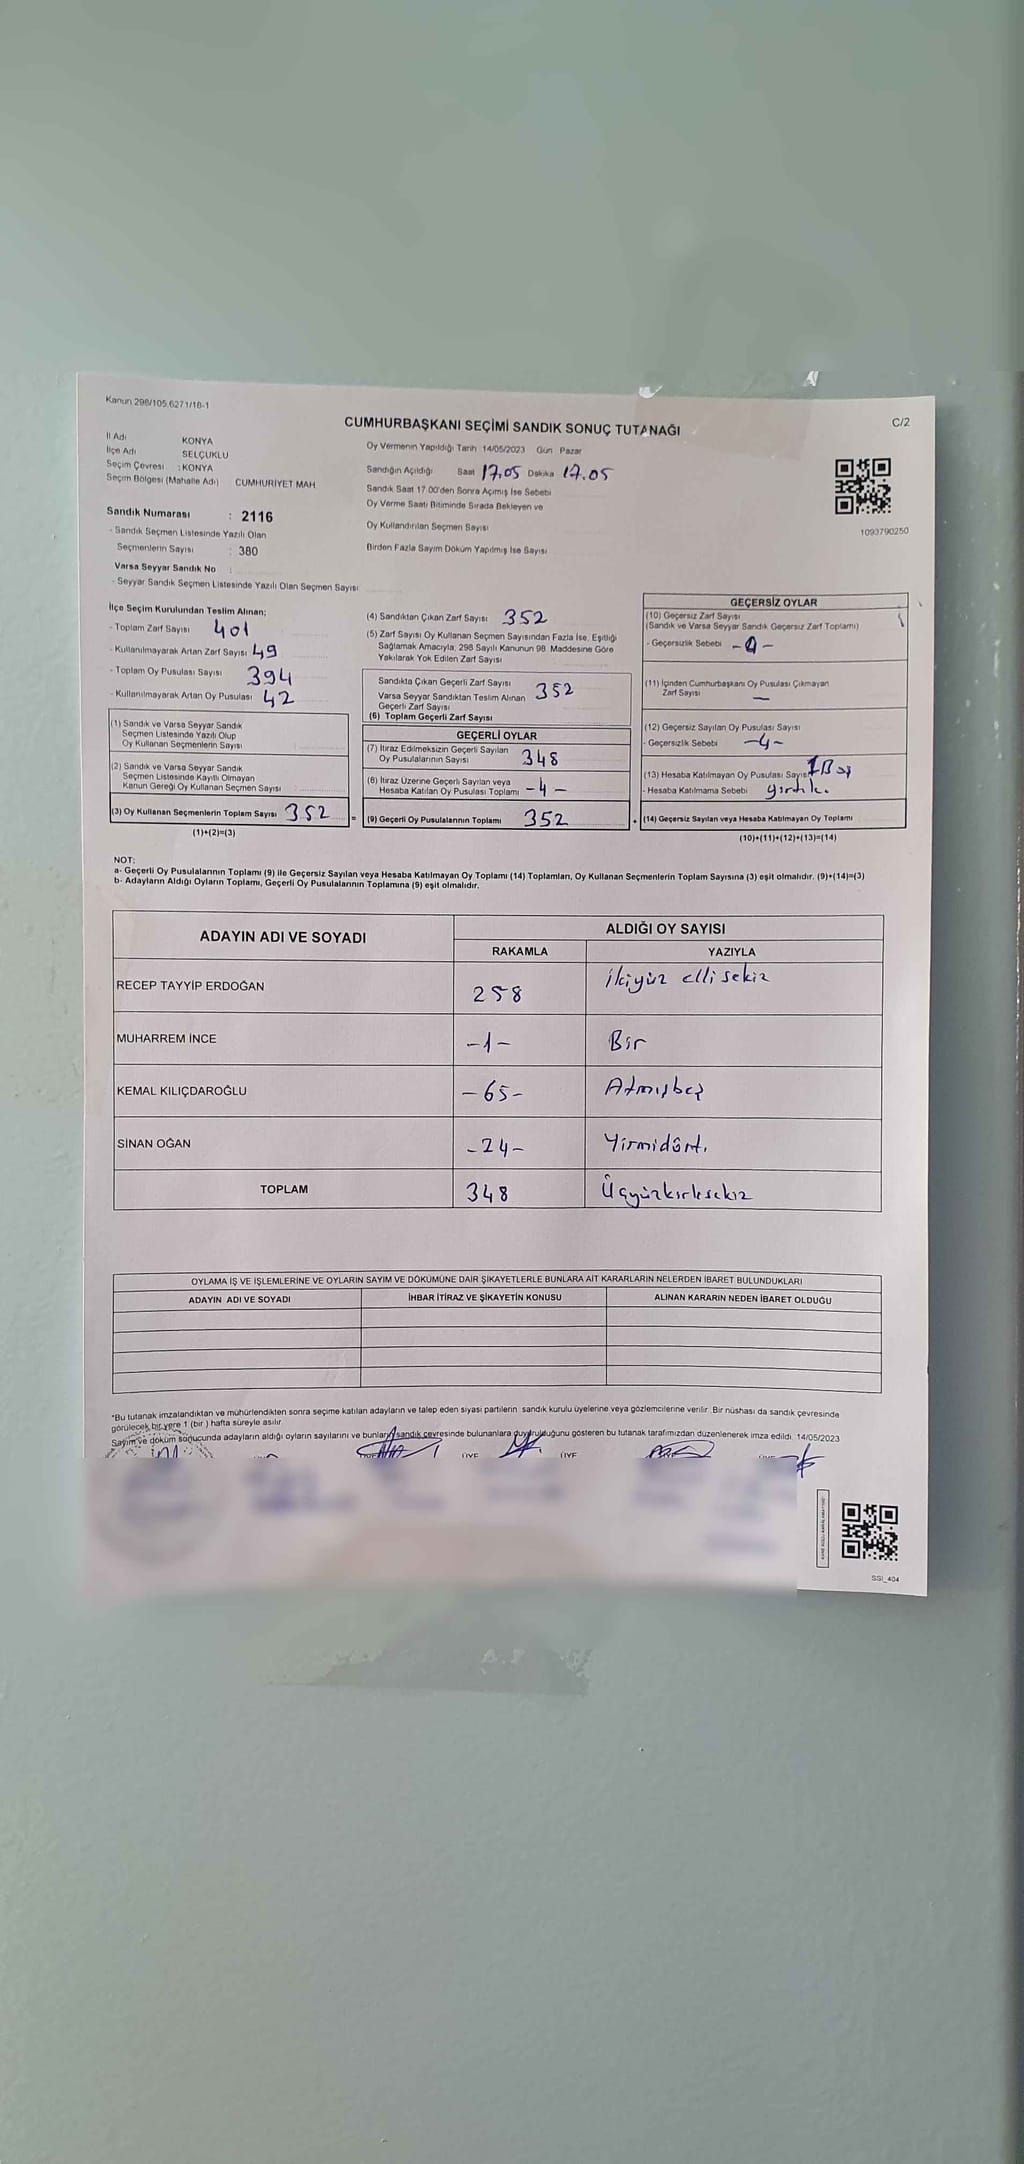 Kanun 298/105,6271/18-1
C/2
CUMHURBAŞKANI SEÇİMİ SANDIK SONUÇ TUTANAĞI
İl Adı KONYA
İlçe Adı SELÇUKLU
Seçim Çevresi : KONYA
Seçim Bölgesi (Mahalle Adı) CUMHURİYET MAH.
Sandık Numarası : 2116
- Sandık Seçmen Listesinde Yazılı Olan
Seçmenlerin Sayısı : 380
Varsa Seyyar Sandık No :
- Seyyar Sandık Seçmen Listesinde Yazılı Olan Seçmen Sayısı
Oy Vermenin Yapıldığı Tarih 14/05/2023 Gün Pazar
Sandığın Açıldığı Saat 17.05 Dakika 17.05
Sandık Saat 17.00'den Sonra Açılmış İse Sebebi
Oy Verme Saati Bitiminde Sırada Bekleyen ve
Oy Kullandırılan Seçmen Sayısı
Birden Fazla Sayım Döküm Yapılmış İse Sayısı
1093790250
İlçe Seçim Kurulundan Teslim Alınan;
- Toplam Zarf Sayısı 401
- Kullanılmayarak Artan Zarf Sayısı 49
- Toplam Oy Pusulası Sayısı 394
- Kullanılmayarak Artan Oy Pusulası 42
(1) Sandık ve Varsa Seyyar Sandık
Seçmen Listesinde Yazılı Olup
Oy Kullanan Seçmenlerin Sayısı
(2) Sandık ve Varsa Seyyar Sandık
Seçmen Listesinde Kayıtlı Olmayan
Kanun Gereği Oy Kullanan Seçmen Sayısı
(3) Oy Kullanan Seçmenlerin Toplam Sayısı 352
(1)+(2)=(3)
(4) Sandıktan Çıkan Zarf Sayısı 352
(5) Zarf Sayısı Oy Kullanan Seçmen Sayısından Fazla İse, Eşitliği
Sağlamak Amacıyla; 298 Sayılı Kanunun 98. Maddesine Göre
Yakılarak Yok Edilen Zarf Sayısı
Sandıkta Çıkan Geçerli Zarf Sayısı
Varsa Seyyar Sandıktan Teslim Alınan 352
Geçerli Zarf Sayısı
(6) Toplam Geçerli Zarf Sayısı
GEÇERLİ OYLAR
(7) İtiraz Edilmeksizin Geçerli Sayılan
Oy Pusulalarının Sayısı 348
(8) İtiraz Üzerine Geçerli Sayılan veya
Hesaba Katılan Oy Pusulası Toplamı -4-
= (9) Geçerli Oy Pusulalarının Toplamı 352
GEÇERSİZ OYLAR
(10) Geçersiz Zarf Sayısı
(Sandık ve Varsa Seyyar Sandık Geçersiz Zarf Toplamı)
- Geçersizlik Sebebi
(11) İçinden Cumhurbaşkanı Oy Pusulası Çıkmayan
Zarf Sayısı —
(12) Geçersiz Sayılan Oy Pusulası Sayısı
- Geçersizlik Sebebi -4-
(13) Hesaba Katılmayan Oy Pusulası Sayısı
- Hesaba Katılmama Sebebi yırtık.
+ (14) Geçersiz Sayılan veya Hesaba Katılmayan Oy Toplamı
(10)+(11)+(12)+(13)=(14)
NOT:
a- Geçerli Oy Pusulalarının Toplamı (9) ile Geçersiz Sayılan veya Hesaba Katılmayan Oy Toplamı (14) Toplamları, Oy Kullanan Seçmenlerin Toplam Sayısına (3) eşit olmalıdır. (9)+(14)=(3)
b- Adayların Aldığı Oyların Toplamı, Geçerli Oy Pusulalarının Toplamına (9) eşit olmalıdır.
ADAYIN ADI VE SOYADI ALDIĞI OY SAYISI
RAKAMLA YAZIYLA
RECEP TAYYİP ERDOĞAN 258 İkiyüz elli sekiz
MUHARREM İNCE -1- Bir
KEMAL KILIÇDAROĞLU -65- Atmışbeş
SİNAN OĞAN -24- Yirmidört.
TOPLAM 348 Üçyüzkırksekiz
OYLAMA İŞ VE İŞLEMLERİNE VE OYLARIN SAYIM VE DÖKÜMÜNE DAİR ŞİKAYETLERLE BUNLARA AİT KARARLARIN NELERDEN İBARET BULUNDUKLARI
ADAYIN ADI VE SOYADI İHBAR İTİRAZ VE ŞİKAYETİN KONUSU ALINAN KARARIN NEDEN İBARET OLDUĞU
*Bu tutanak imzalandıktan ve mühürlendikten sonra seçime katılan adayların ve talep eden siyasi partilerin sandık kurulu üyelerine veya gözlemcilerine verilir. Bir nüshası da sandık çevresinde
görülecek bir yere 1 (bir ) hafta süreyle asılır.
Sayım ve döküm sonucunda adayların aldığı oyların sayılarını ve bunların sandık çevresinde bulunanlara duyurulduğunu gösteren bu tutanak tarafımızdan düzenlenerek imza edildi. 14/05/2023
ÜYE ÜYE
SSİ_404